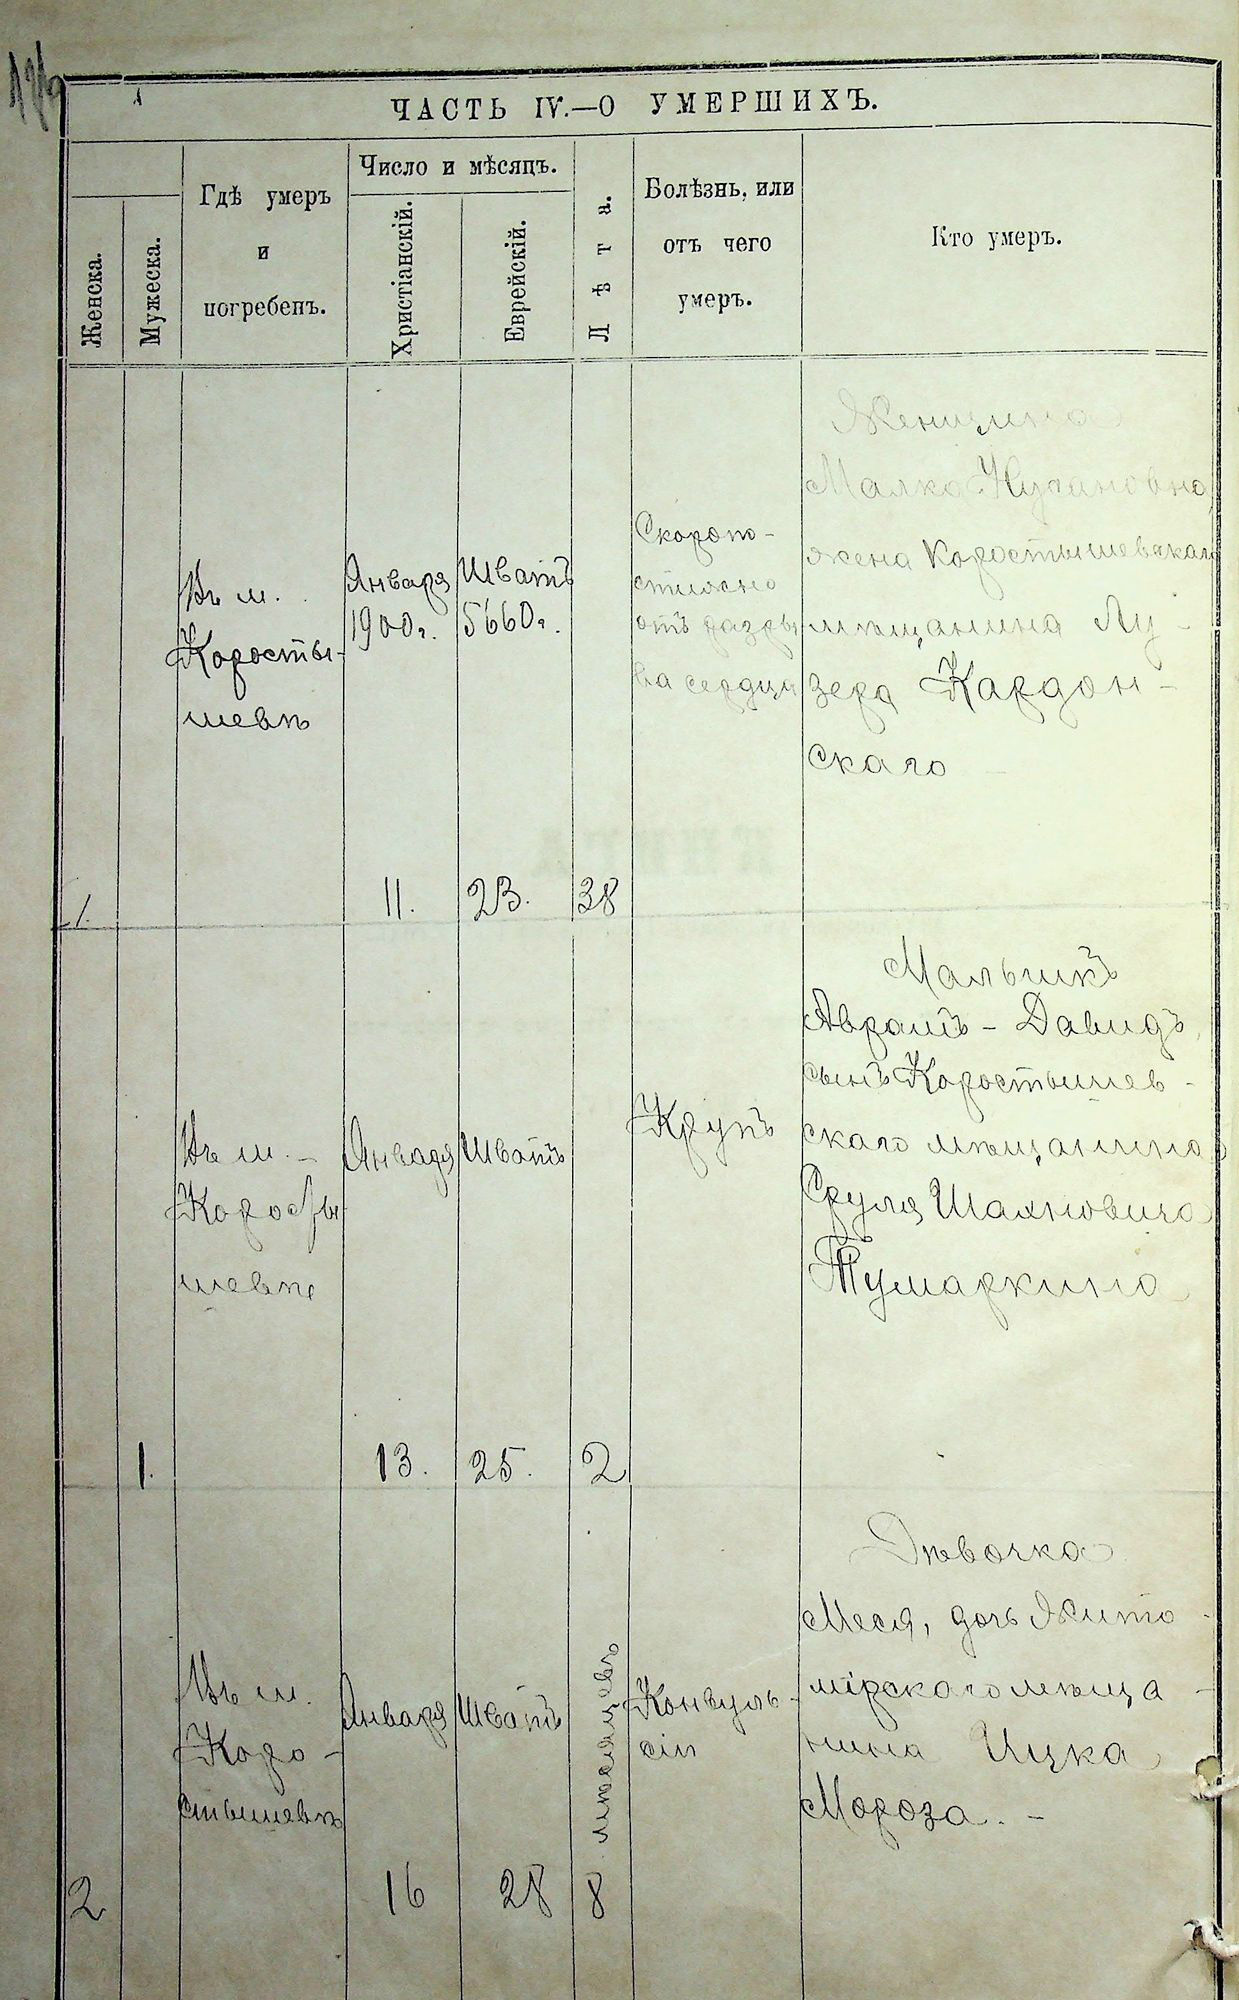 1
ЧАСТЬ IV.—О УМЕРШИХЪ.
Женска.
Мужеска.
Гдѣ умеръ
и
погребенъ.
Число и мѣсяцъ.
Христіанскій.
Еврейскій.
Лѣта.
Болѣзнь, или
отъ чего
умеръ.
Кто умеръ.
1.
Въ м.
Коросты-
шевѣ
Января
1900 г.
11.
Шватъ
5660 г.
23.
38
Скоропо-
стижно
отъ разры
ва сердца
Женщина
Малка
жена Коростышевскаго
мѣщанина Лу-
зера Кардон-
скаго
1.
Въ м. -
Коросты-
шевѣ
Января
13.
Шватъ
25.
2
Крупъ
Мальчикъ
Аврамъ - Давидъ,
сынъ Коростышев-
скаго мѣщанина
Сруля Шахновича
Тумаркина
2
Въ м.
Коро-
стышевѣ
Января
16
Шватъ
28
8 мѣсяцевъ
Конвуль-
сіи
Дѣвочка
Меся, дочь Жито-
мірскаго мѣща-
нина Ицка
Мороза. -